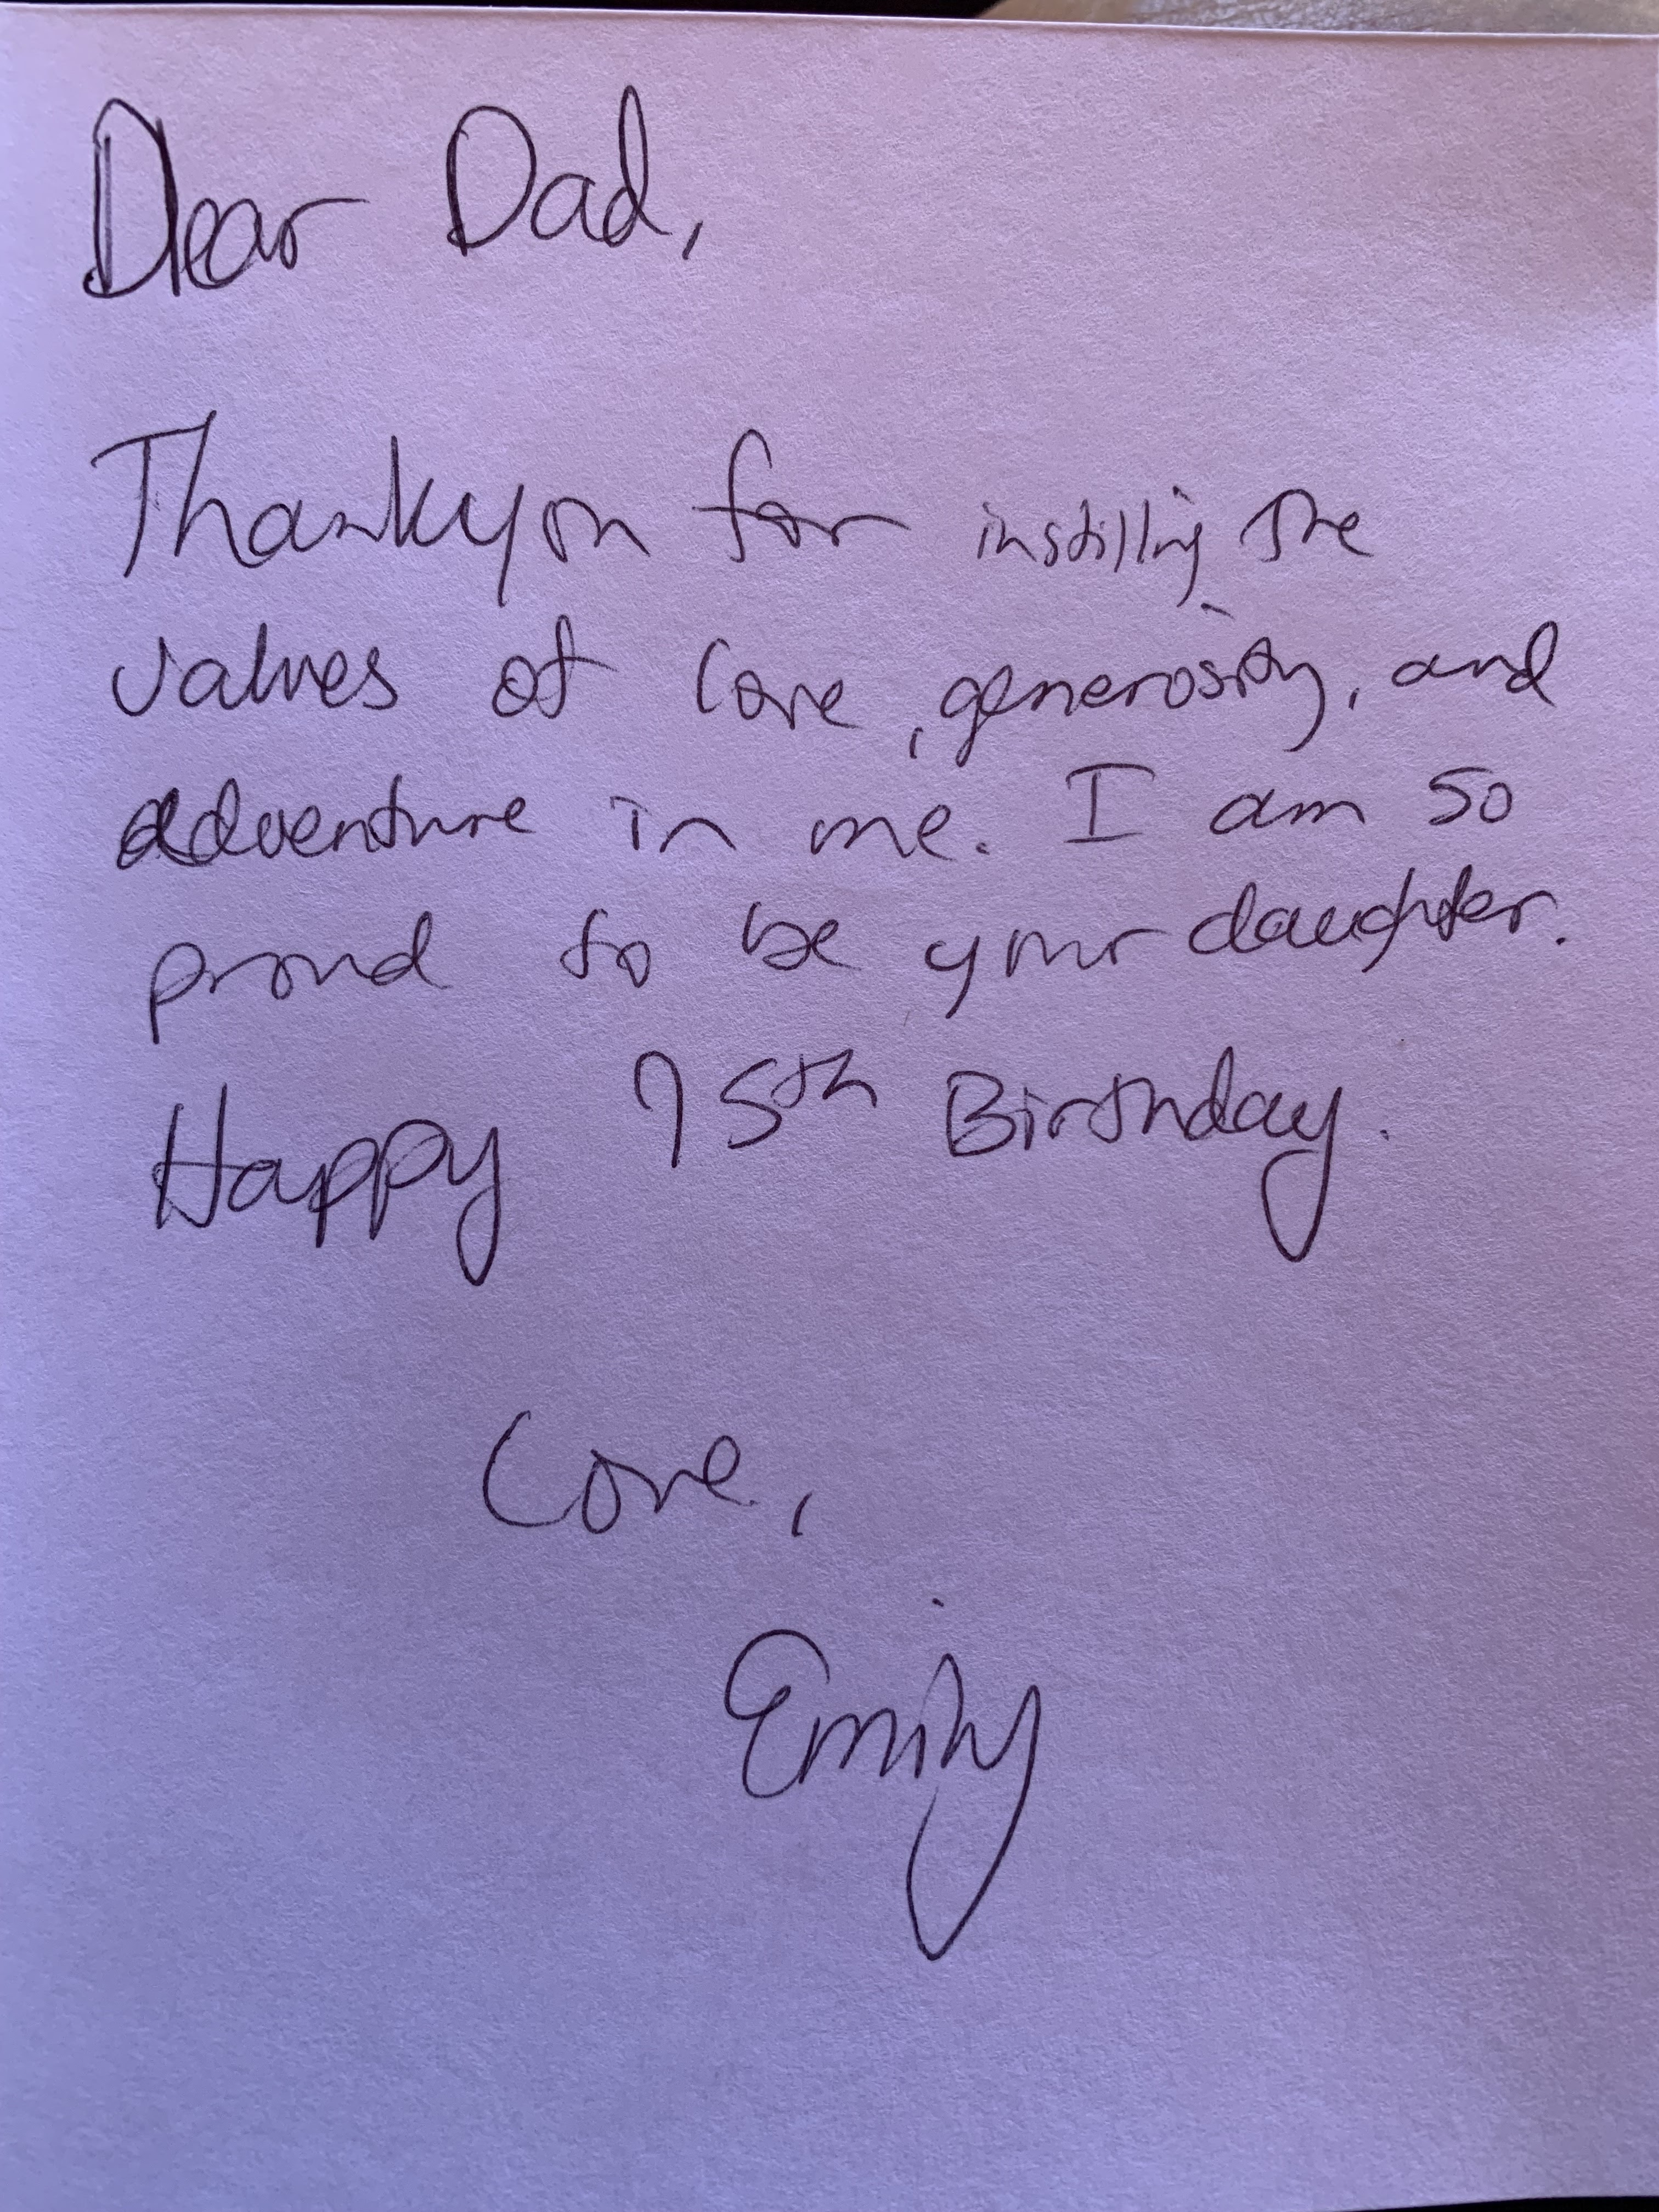 Dear Dad,
Thankyou for instilling the
values of love, generosity, and
adventure in me. I am so
proud to be your daughter.
Happy 75th Birthday.
Love,
Emily